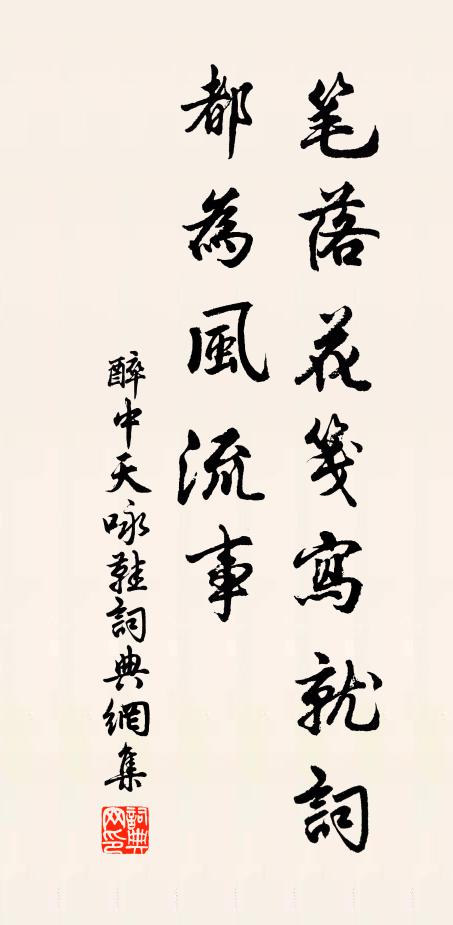 笔落花箋寫就詞
都為風流事
醉中天咏鞋詞典網集
詞典网印